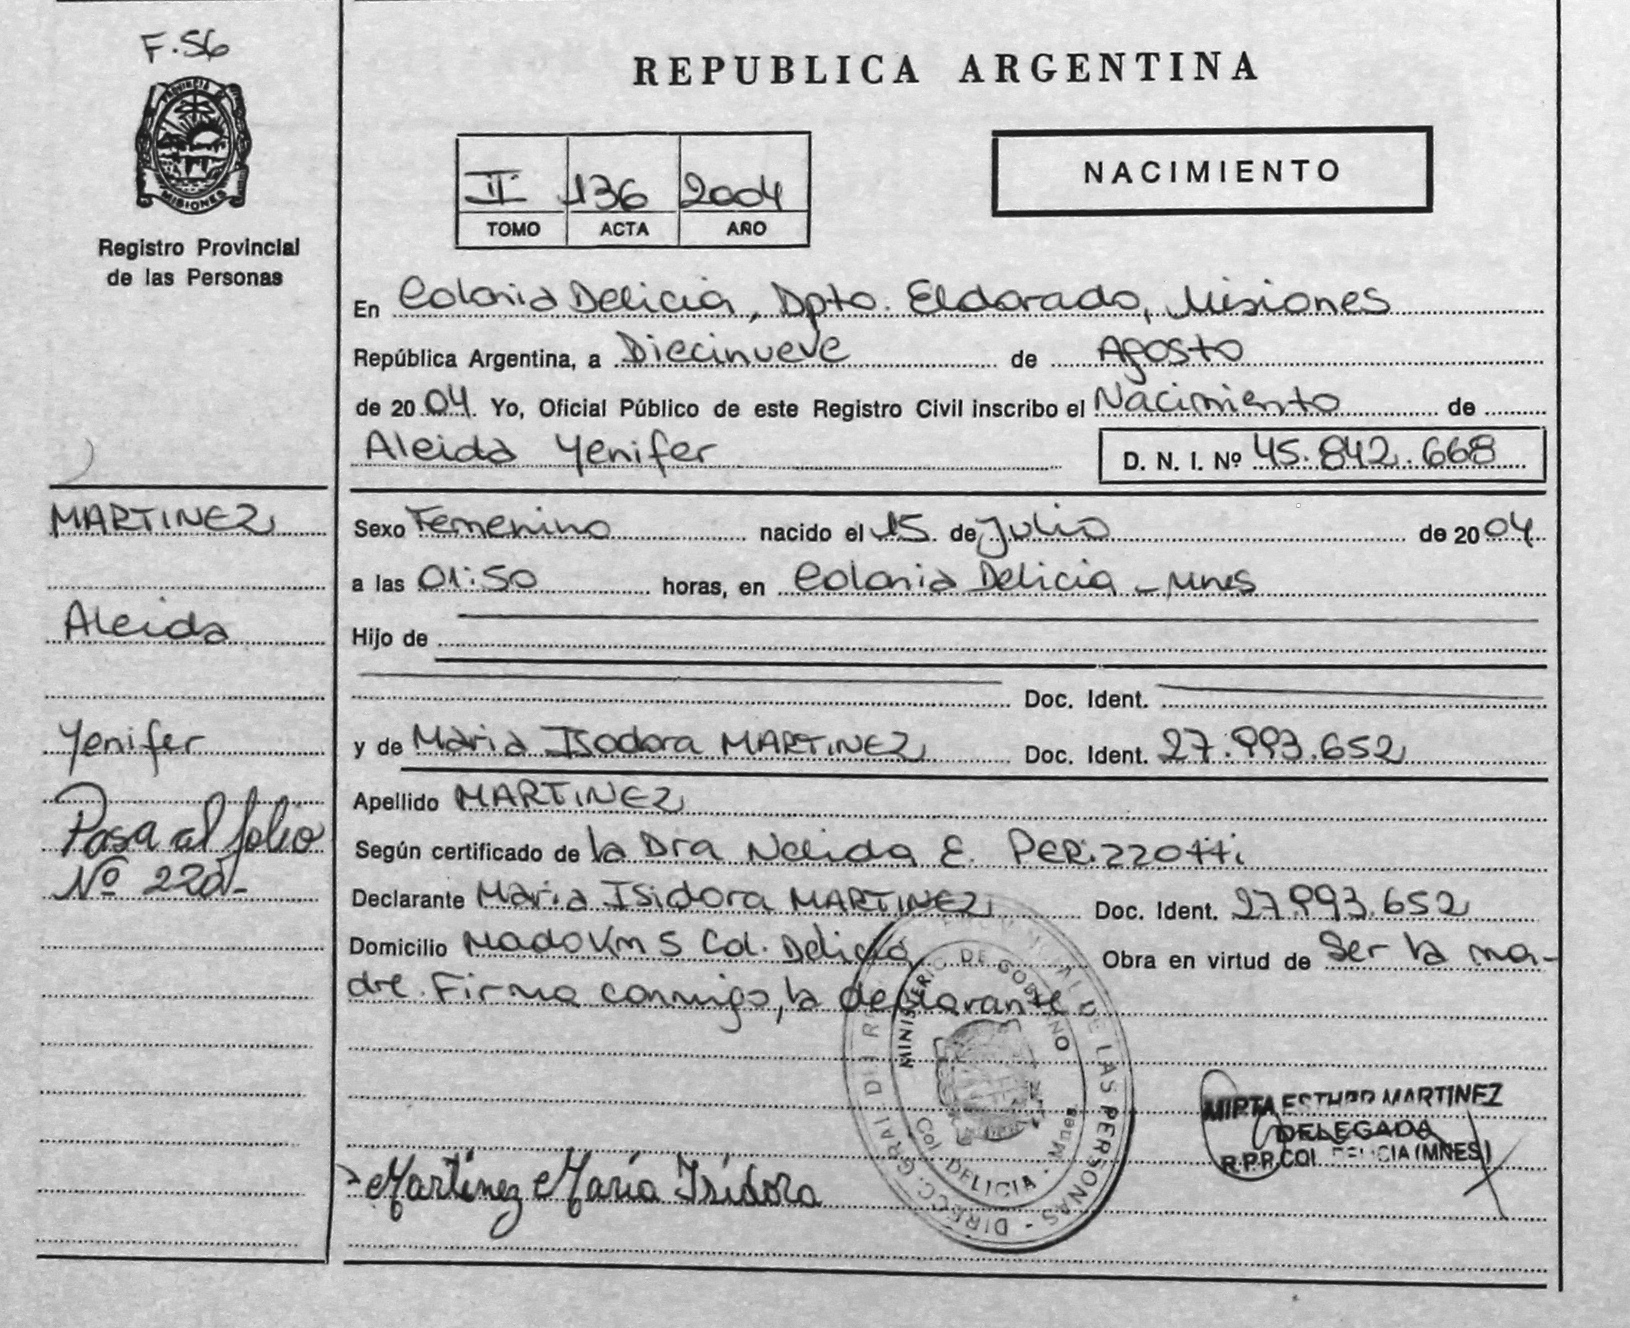 F.56
PROVINCIA DE
MISIONES
Registro Provincial
de las Personas
REPUBLICA ARGENTINA
II 136 2004
TOMO ACTA AÑO
NACIMIENTO
En Colonia Delicia, Dpto. Eldorado, Misiones
República Argentina, a Diecinueve de Agosto
de 2004. Yo, Oficial Público de este Registro Civil inscribo el Nacimiento de
Aleida Yenifer D. N. I. Nº 45.842.668
MARTINEZ
Sexo Femenino nacido el 15 de Julio de 2004
a las 01:50 horas, en Colonia Delicia - Mnes
Aleida
Hijo de
Doc. Ident.
Yenifer
y de Maria Isodora MARTINEZ Doc. Ident. 27.993.652
Apellido MARTINEZ
Pasa al folio
Nº 220-
Según certificado de la Dra Nelida E. PERIZZOTTI
Declarante Maria Isidora MARTINEZ Doc. Ident. 27.993.652
Domicilio Mado Km 5 Col. Delicia Obra en virtud de Ser la ma-
dre. Firma conmigo, la declarante
MINISTERIO DE GOBIERNO
DE LAS PERSONAS - DIRECC. GRAL
Col. DELICIA - Mnes.
MIRTA ESTHER MARTINEZ
DELEGADA
R.P.P. COL. DELICIA (MNES)
Martínez María Isidora